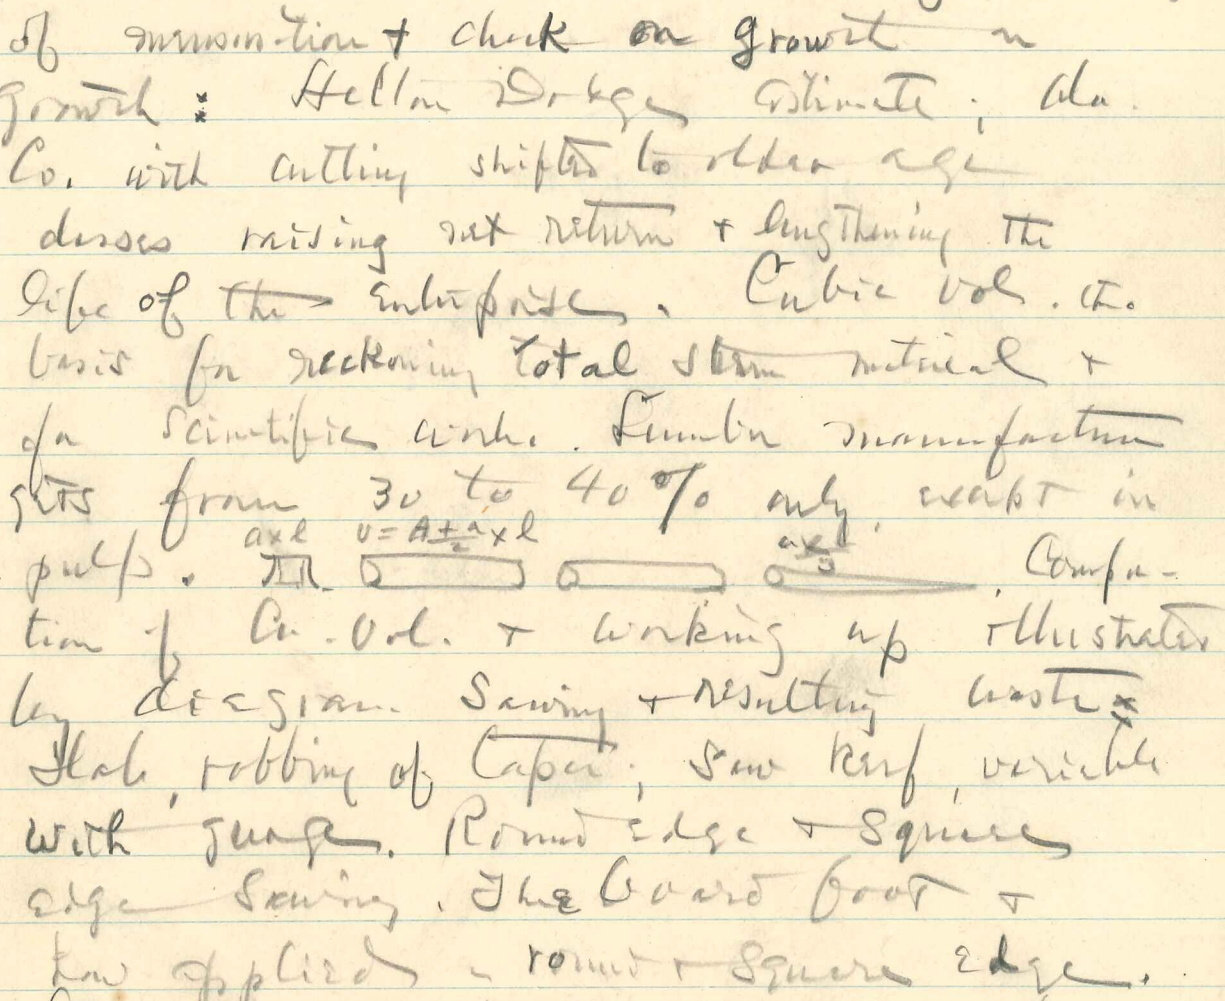 of mensuration + check on growth in
growth: Dodge estimate; Ala.
Co. with cutting shifted to older age
classes raising net return + lengthening the
life of the enterprise. Cubic vol. the
basis for reckoning total stem material +
for scientific work. Lumber manufacture
gets from 30 to 40% only, except in
pulp. a x l v = A + a / 2 x l a x l / 3 . Compu-
tion of Cu. Vol. + working up illustrated
by diagram. Sawing + resulting waste:
Slab, robbing of taper; saw kerf, variable
with guage. Round edge + square
edge sawing. The board foot +
how applied in round + square edge.